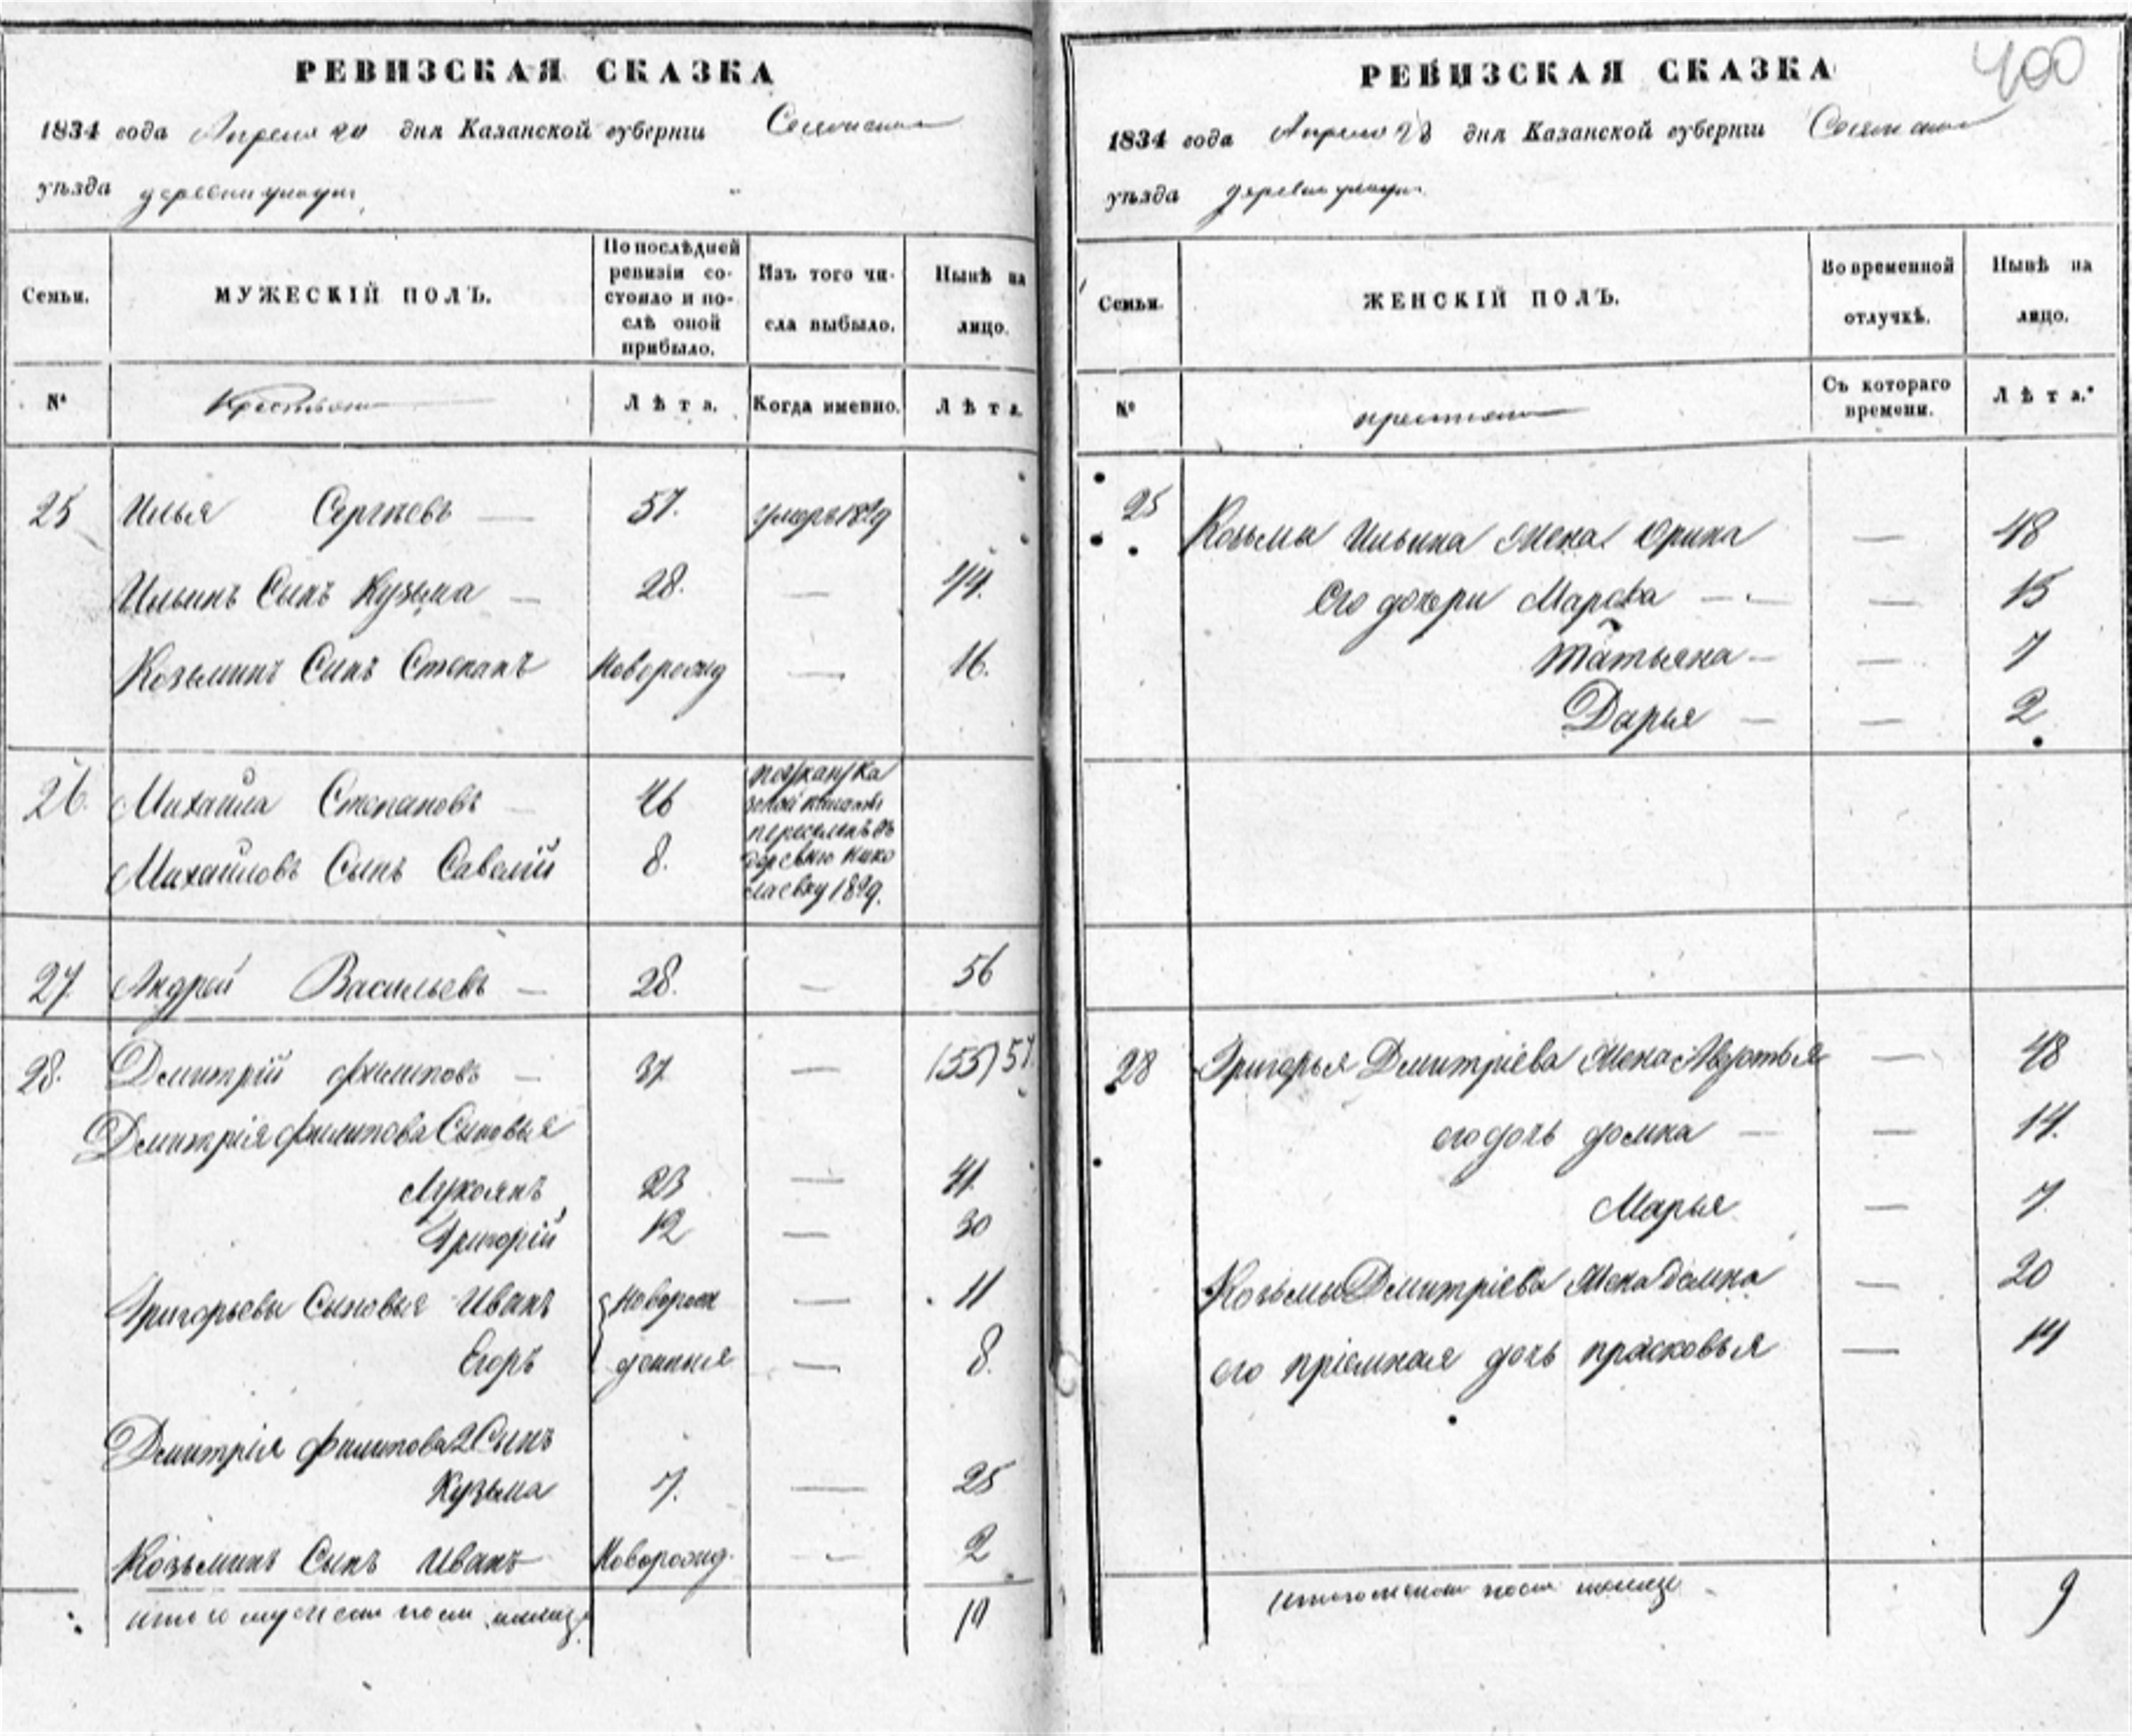 РЕВИЗСКАЯ СКАЗКА
1834 года Апреля 20 дня Казанской губернии
уѣзда деревни
Семьи.
МУЖЕСКІЙ ПОЛЪ.
По послѣдней ревизіи состояло и послѣ оной прибыло.
Изъ того числа выбыло.
Нынѣ на лицо.
№
Крестьяне
Лѣта.
Когда именно.
Лѣта.
25 Илья Сергѣевъ — 57. умеръ 1829
Ильинъ Сынъ Кузьма — 28. — 44.
Козьминъ Сынъ Степанъ Новорожд — 16.
26. Михайла Степановъ — 46
Михайловъ Сынъ Савелій 8.
по указу Ка
зенной палаты
переселенъ въ
деревню Нико
лаевку 1829.
27. Андрей Васильевъ — 28. — 56
28. Дмитрій Филиповъ — 37 — (55) 57
Дмитрія Филипова Сыновья
Лукоянъ 23 — 41.
Григорій 12 — 30
Григорьевы Сыновья Иванъ Новорож — 11
Егоръ денныя — 8.
Дмитрія Филипова 2 Сынъ
Кузьма 7. — 25
Козьминъ Сынъ Иванъ Новорожд. — 2
итого мужеска пола налицо 10
400
РЕВИЗСКАЯ СКАЗКА
1834 года Апреля 23 дня Казанской губернии
уѣзда деревни
Семьи.
ЖЕНСКІЙ ПОЛЪ.
Во временной отлучкѣ.
Нынѣ на лицо.
№
крестьяне
Съ котораго времени.
Лѣта.
25 Козьмы Ильина Жена Орина — 48
Его дочери Марфа — — 15
Татьяна — — 7
Дарья — — 2
28 Григорья Дмитріева Жена Авдотья — 48
его дочь домна — — 14.
Марья — 7.
Козьмы Дмитріева Жена домна — 20
его пріемная дочь прасковья — 14
итого женска пола налицо 9